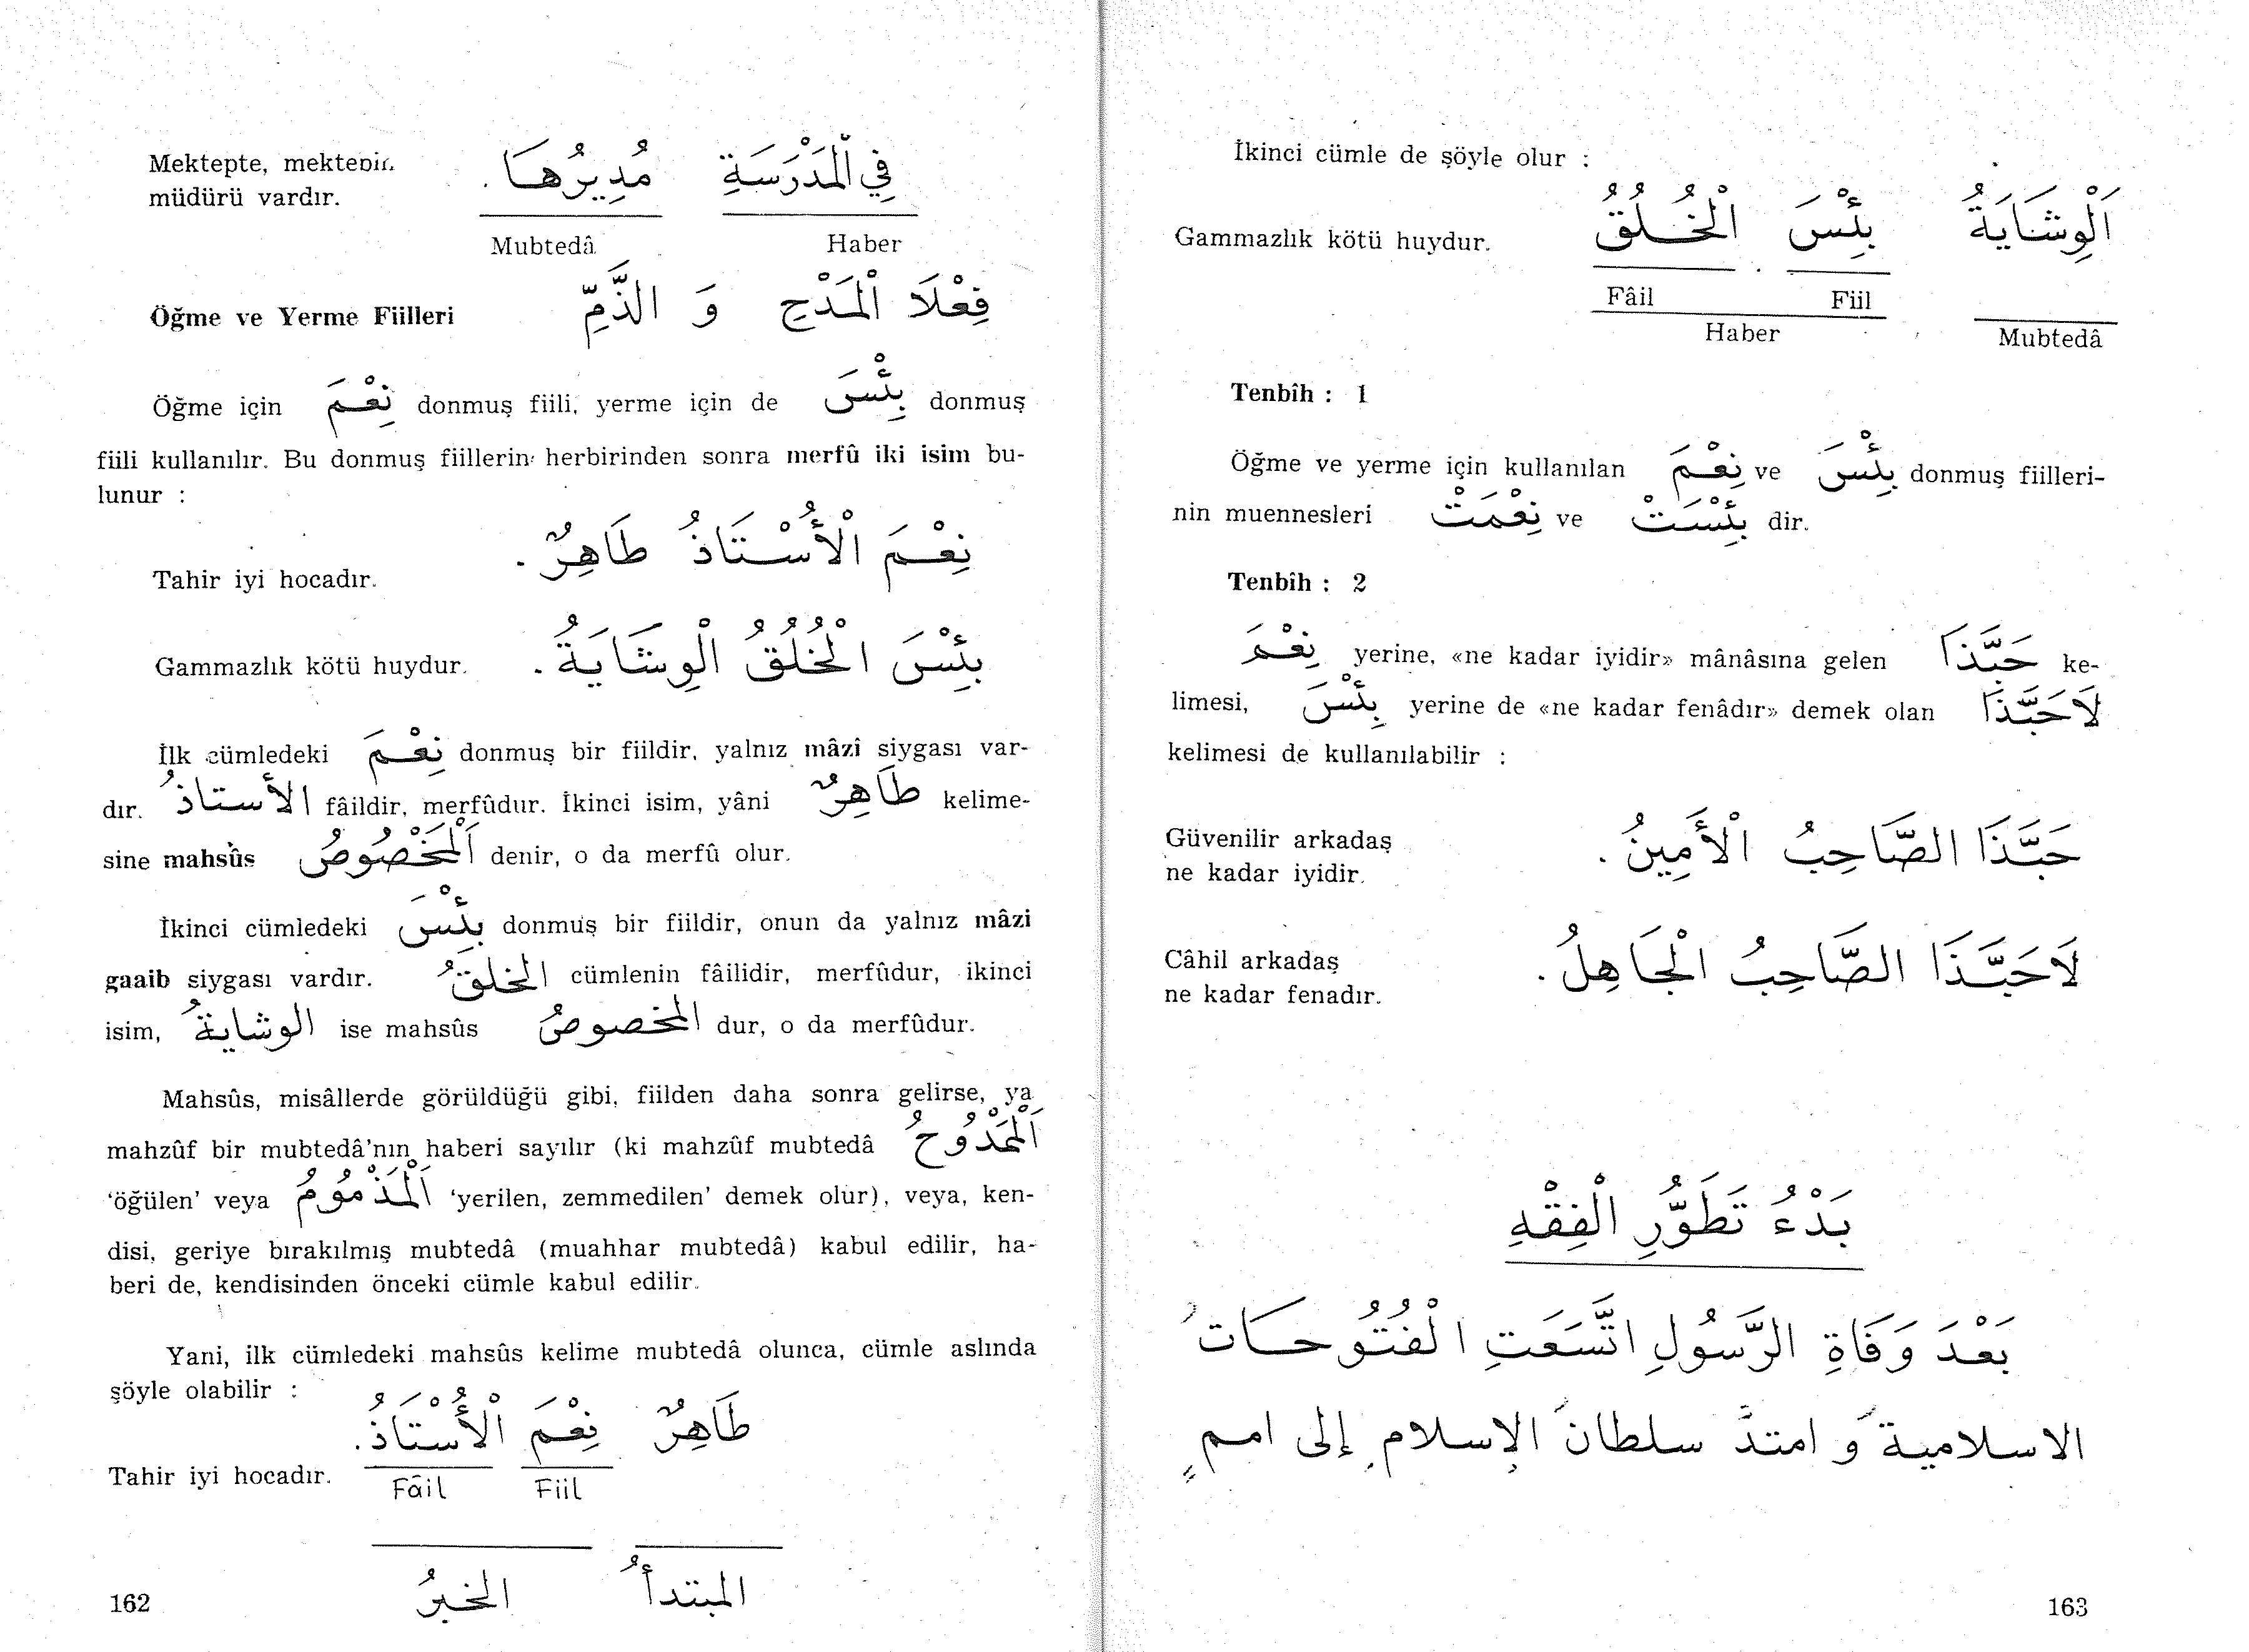 Mektepte, mektebin فِي الْمَدْرَسَةِ مُدِيرُهَا .
müdürü vardır.
Mubtedâ Haber
Öğme ve Yerme Fiilleri فِعْلَا الْمَدْحِ وَ الذَّمِّ
Öğme için نِعْمَ donmuş fiili, yerme için de بِئْسَ donmuş
fiili kullanılır. Bu donmuş fiillerin herbirinden sonra merfû iki isim bu-
lunur :
Tahir iyi hocadır. نِعْمَ الْأُسْتَاذُ طَاهِرٌ .
Gammazlık kötü huydur. بِئْسَ الْخُلُقُ الْوِشَايَةُ .
İlk cümledeki نِعْمَ donmuş bir fiildir, yalnız mâzî siygası var-
dır. الأستاذُ fâildir, merfûdur. İkinci isim, yâni طَاهِرٌ kelime-
sine mahsûs اَلْمَخْصُوصُ denir, o da merfû olur.
İkinci cümledeki بِئْسَ donmuş bir fiildir, onun da yalnız mâzi
gaaib siygası vardır. الخلقُ cümlenin fâilidir, merfûdur, ikinci
isim, الوشايةُ ise mahsûs المخصوصُ dur, o da merfûdur.
Mahsûs, misâllerde görüldüğü gibi, fiilden daha sonra gelirse, ya
mahzûf bir mubtedâ'nın haberi sayılır (ki mahzûf mubtedâ اَلْمَمْدُوحُ
'öğülen' veya اَلْمَذْمُومُ 'yerilen, zemmedilen' demek olur), veya, ken-
disi, geriye bırakılmış mubtedâ (muahhar mubtedâ) kabul edilir, ha-
beri de, kendisinden önceki cümle kabul edilir.
Yani, ilk cümledeki mahsûs kelime mubtedâ olunca, cümle aslında
şöyle olabilir :
Tahir iyi hocadır. طَاهِرٌ نِعْمَ الْأُسْتَاذُ .
Fâil Fiil
المبتدأُ الخبرُ
162
İkinci cümle de şöyle olur :
Gammazlık kötü huydur. اَلْوِشَايَةُ بِئْسَ الْخُلُقُ
Fâil Fiil
Haber Mubtedâ
Tenbîh : 1
Öğme ve yerme için kullanılan نِعْمَ ve بِئْسَ donmuş fiilleri-
nin muennesleri نِعْمَتْ ve بِئْسَتْ dir.
Tenbîh : 2
نِعْمَ yerine, «ne kadar iyidir» mânâsına gelen حَبَّذَا ke-
limesi, بِئْسَ yerine de «ne kadar fenâdır» demek olan لَاحَبَّذَا
kelimesi de kullanılabilir :
Güvenilir arkadaş حَبَّذَا الصَّاحِبُ الْأَمِينُ .
ne kadar iyidir.
Câhil arkadaş لَاحَبَّذَا الصَّاحِبُ الْجَاهِلُ .
ne kadar fenadır.
بَدْءُ تَطَوُّرِ الْفِقْهِ
بَعْدَ وَفَاةِ الرَّسُولِ اتَّسَعَتِ الْفُتُوحَاتُ
الاسلاميةُ وَ امتدَّ سلطانُ الإسلامِ إلى اممٍ
163